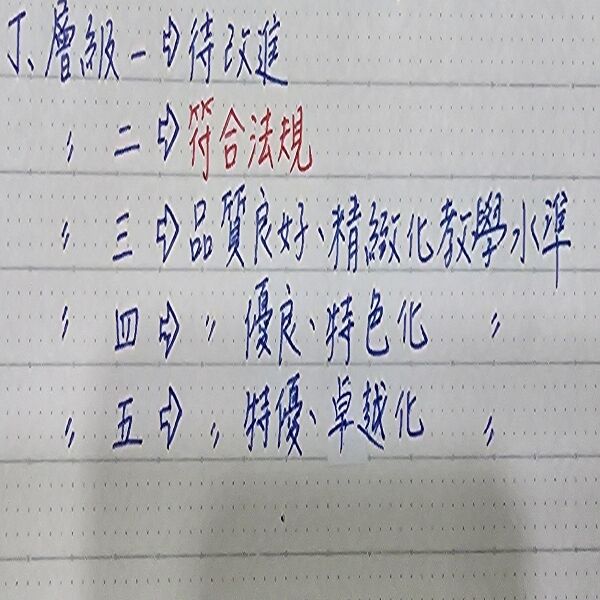 丁、層級一⇨待改進
〃 二⇨符合法規
〃 三⇨品質良好、精緻化教學水準
〃 四⇨〃優良、特色化 〃
〃 五⇨〃特優、卓越化 〃